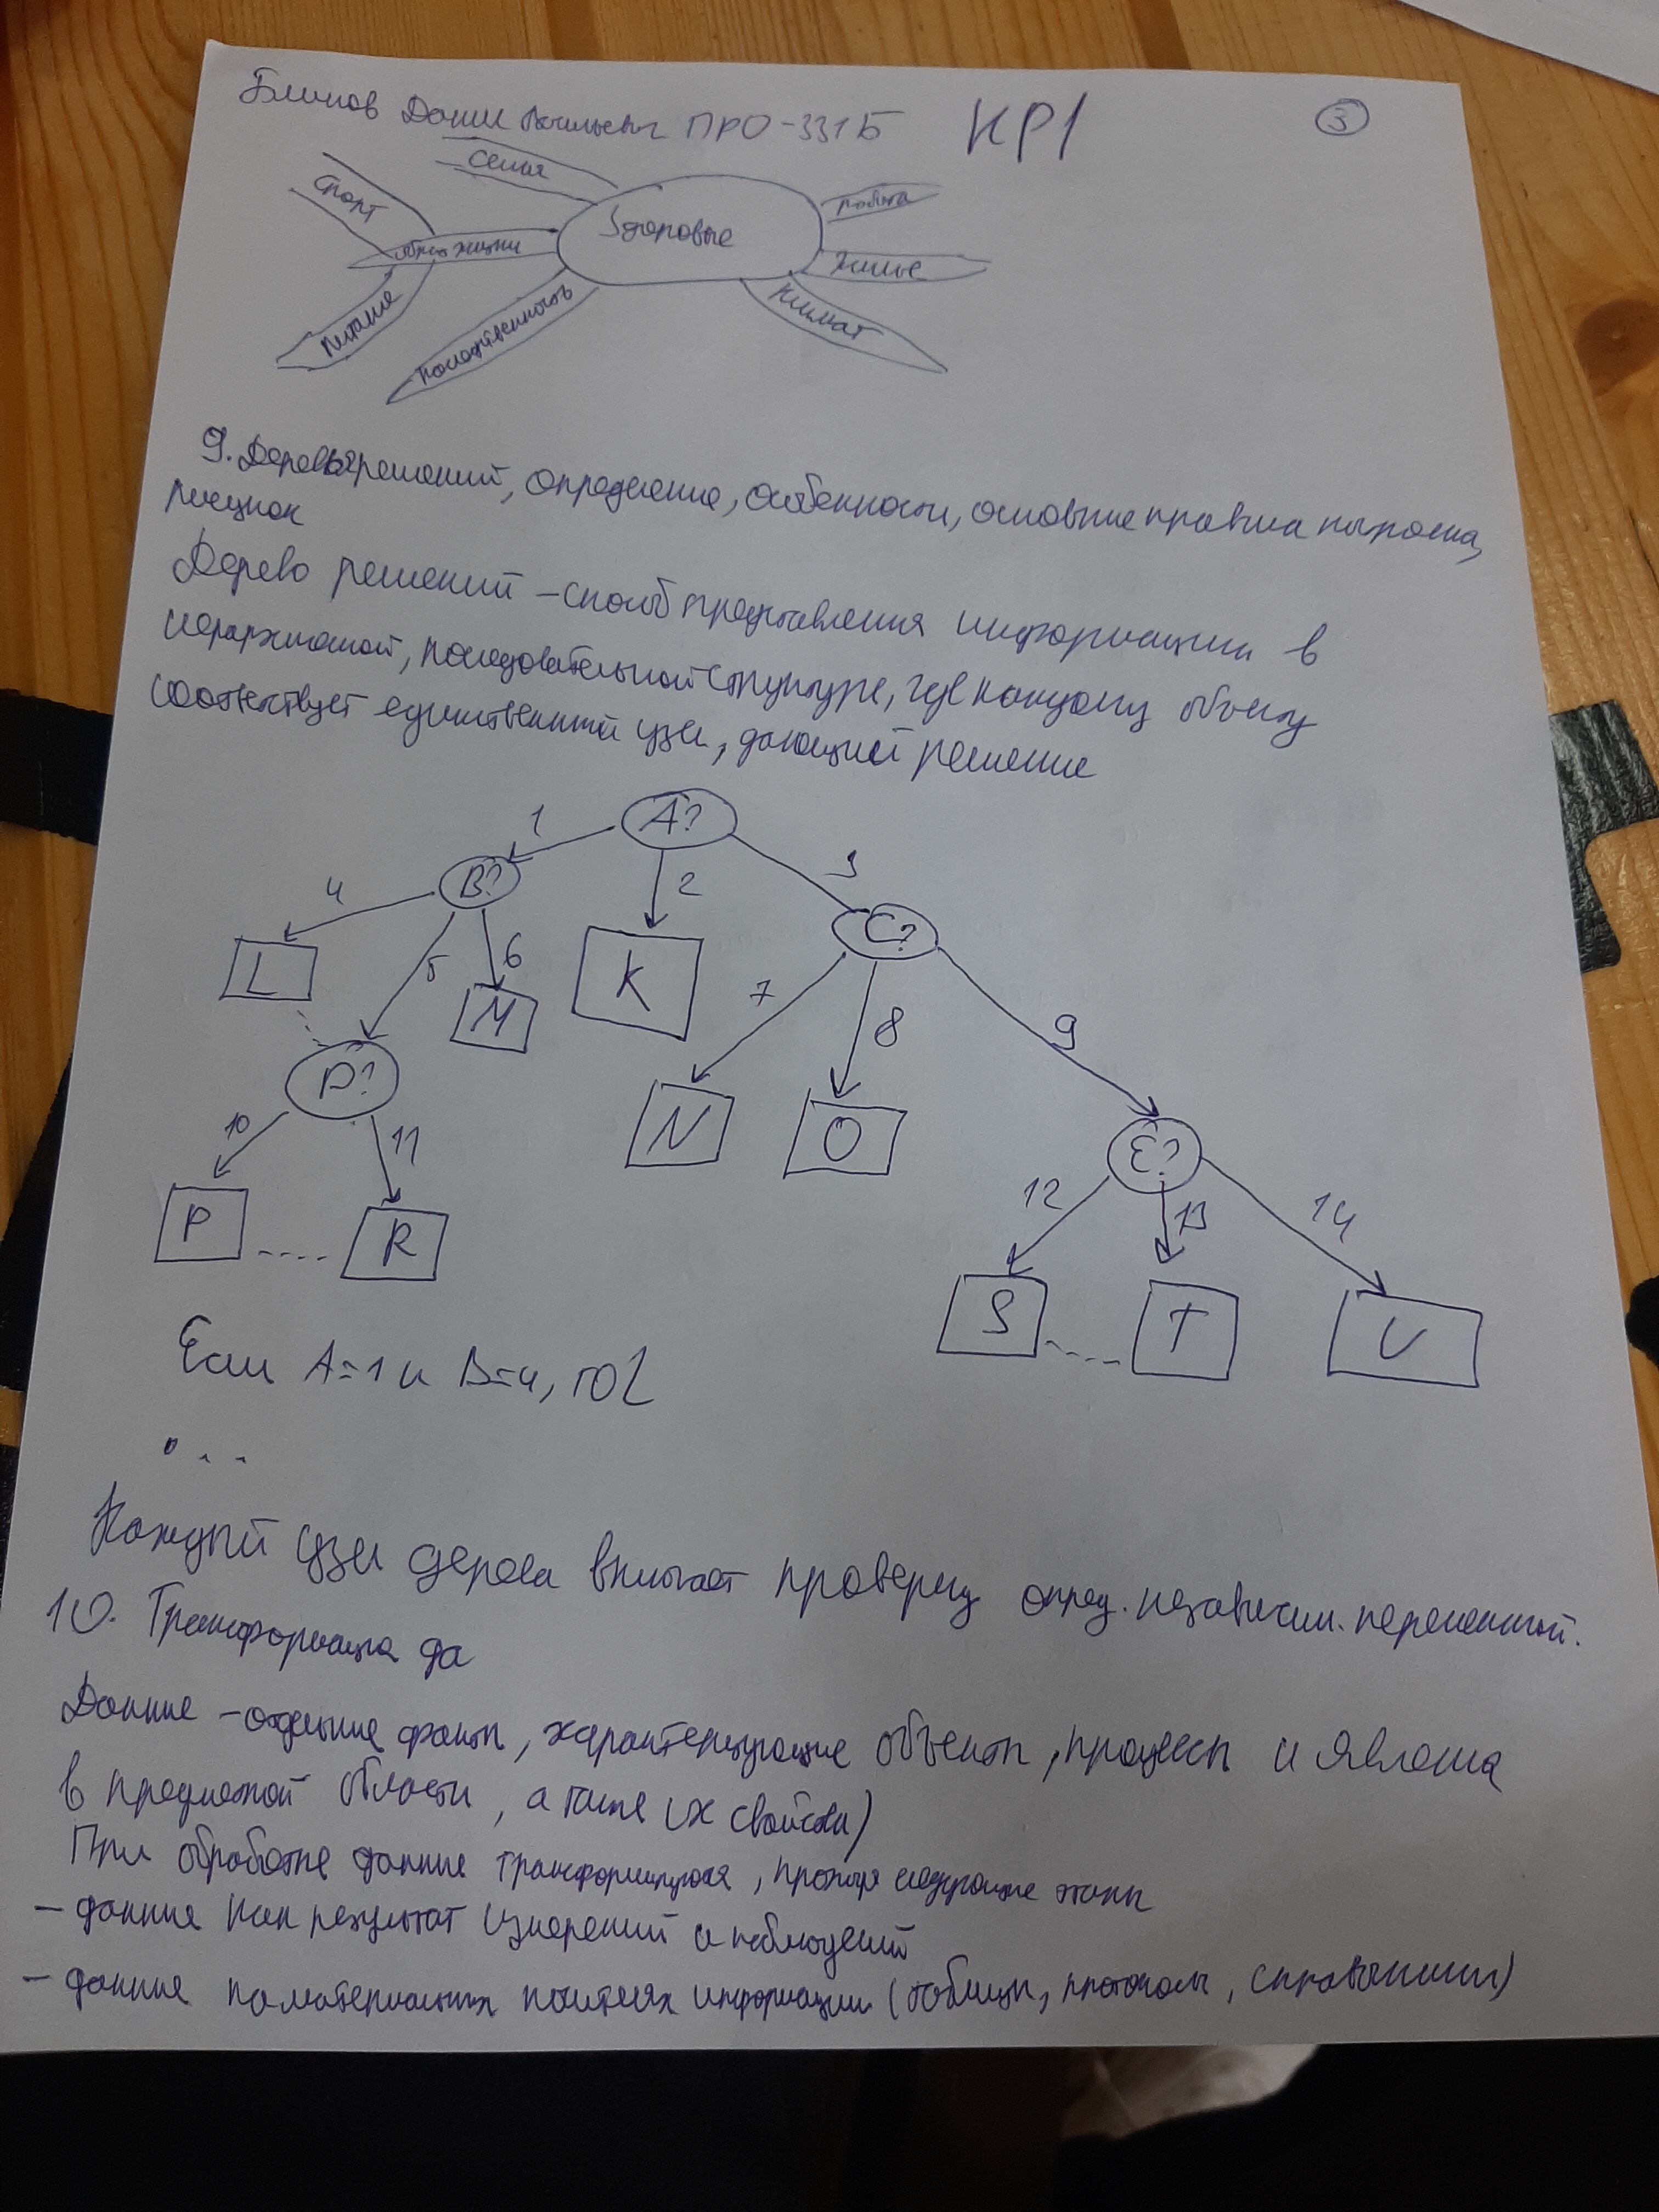 Блинов Данил ПРО-331Б КР1 3
Семья
Спорт
работа
Здоровье
образ жизни
жилье
Питание
климат
наследственность
9. Деревья решений, определение, особенности, основные правила
рисунок
Дерево решений – способ представления информации в
иерархической, последовательной структуре, где каждому объекту
соответствует единственный узел, дающий решение
A?
1 2 3
B? C?
4 5 6
L M K
7 8 9
D?
N O E?
10 11
P .... R
12 13 14
S .... T U
Если A=1 и B=4, то L
...
Каждый узел дерева включает проверку опред. независим. переменной.
10. Трансформация да
Данные – отдельные факты, характеризующие объекты, процессы и явления
в предметной области, а также их свойства)
При обработке данные трансформируются, проходя следующие этапы
– данные как результат измерений и наблюдений
– данные на материальных носителях информации (таблицы, протоколы, справочники)